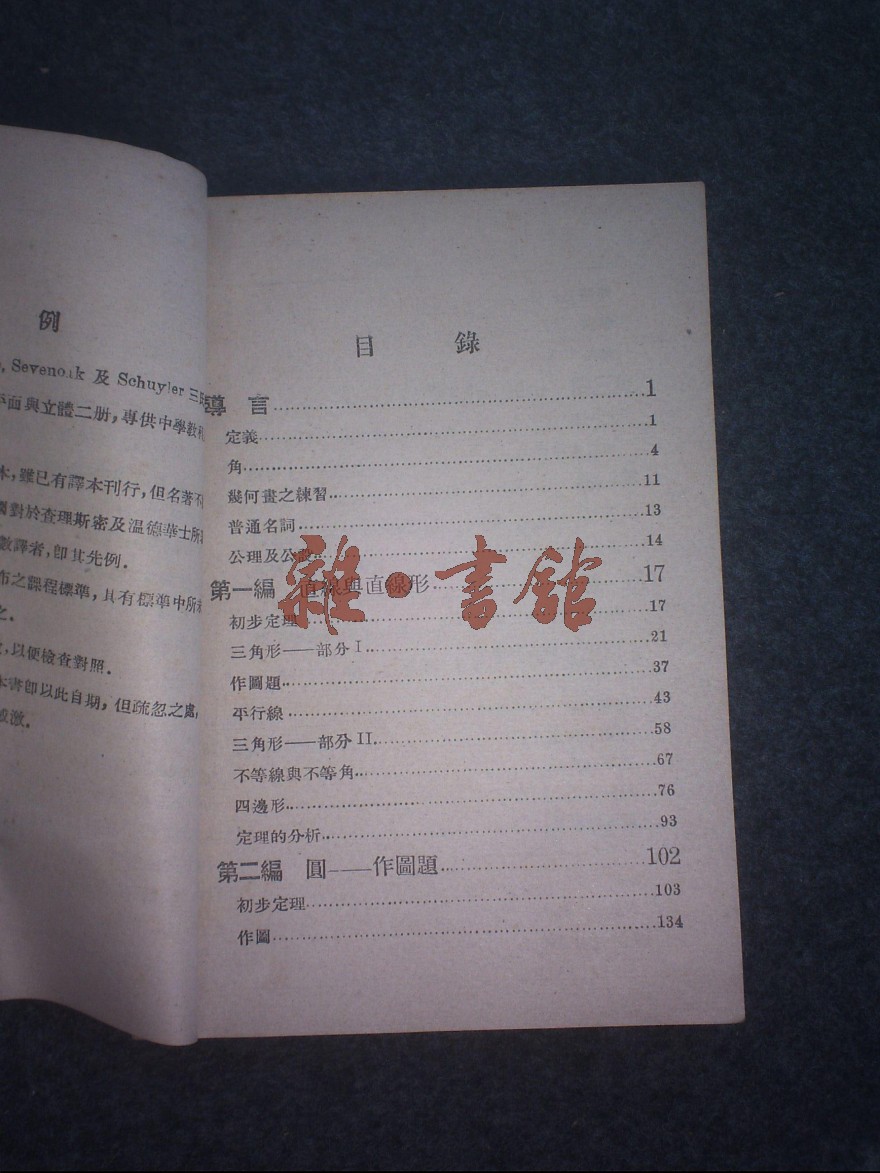 例
Sevenoak 及 Schuyler 三
平面與立體二册,專供中學敎
本,雖已有譯本刊行,但名著不
對於查理斯密及温德華士所
數譯者,卽其先例.
布之課程標準,其有標準中所
之.
,以便檢查對照.
本書卽以此自期,但疏忽之處,
感激.
目 錄
導 言 1
定義 1
角 4
幾何畫之練習 11
普通名詞 13
公理及公設 14
第一編 直線與直線形 17
初步定理 17
三角形——部分 I 21
作圖題 37
平行線 43
三角形——部分 II 58
不等線與不等角 67
四邊形 76
定理的分析 93
第二編 圓——作圖題 102
初步定理 103
作圖 134
雜·書館